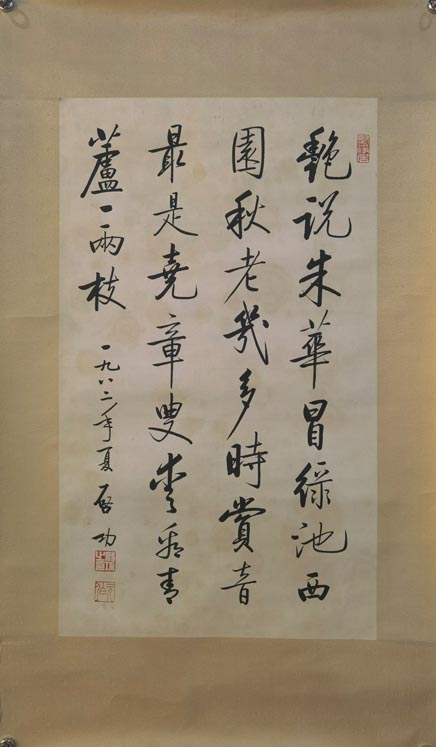 艷說朱華冒綠池西
園秋老幾多時賞音
最是堯章叟愛看青
蘆一兩枝
一九八二年夏 啓功